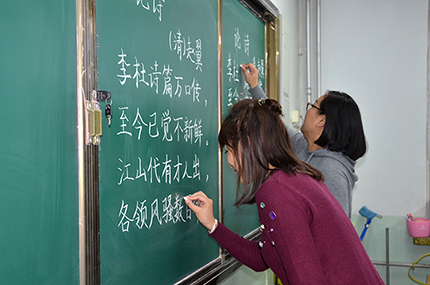 论诗
(清)赵翼
李杜诗篇万口传,
至今已觉不新鲜。
江山代有才人出,
各领风骚数百
论诗
李杜
至今